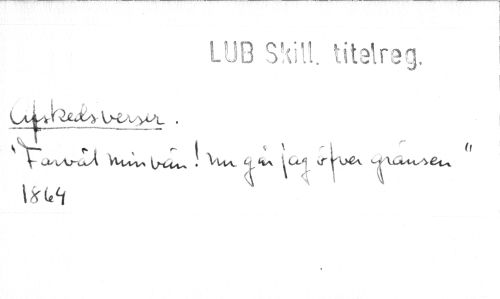 LUB Skill. titelreg.
Afskedsverser.
"Farväl min vän! nu går jag öfver gränsen"
1864